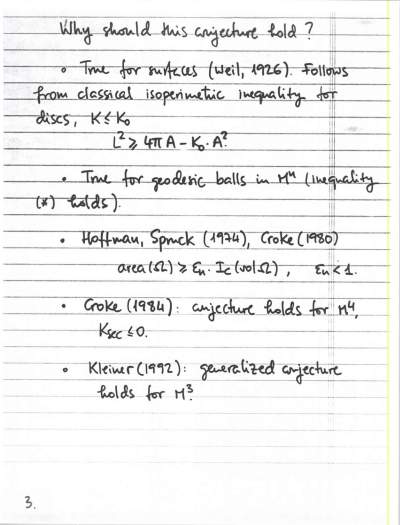 Why should this conjecture hold?
• True for surfaces (Weil, 1926). Follows
from classical isoperimetric inequality for
discs, K ≤ K₀
L² ≥ 4π A – K₀·A².
• True for geodesic balls in Mⁿ (inequality
(*) holds).
• Hoffman, Spruck (1974), Croke (1980)
area(Ω) ≥ εₙ · I_c(vol Ω) , εₙ < 1.
• Croke (1984): conjecture holds for M⁴,
K_sec ≤ 0.
• Kleiner (1992): generalized conjecture
holds for M³.
3.